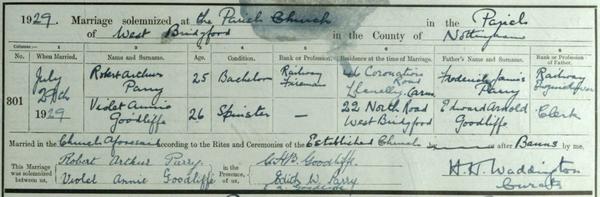 1929. Marriage solemnized at the Parish Church in the Parish
of West Bridgford in the County of Nottingham
Columns:— 1 2 3 4 5 6 7 8
No. When Married. Name and Surname. Age. Condition. Rank or Profession. Residence at the time of Marriage. Father's Name and Surname. Rank or Profession of Father.
801 July 1929
Robert Arthur Parry 25 Bachelor Railway Fireman Coronation Road Llanelly. Carm Frederick James Parry Railway
Violet Annie Goodliffe 26 Spinster — 22 North Road West Bridgford Edward Arnold Goodliffe Clerk
Married in the Church aforesaid According to the Rites and Ceremonies of the Established Church after Banns by me,
This Marriage was solemnized between us, Robert Arthur Parry. Violet Annie Goodliffe
in the Presence of us, Goodliffe. Edith W. Parry
H. H. Waddington
Curate